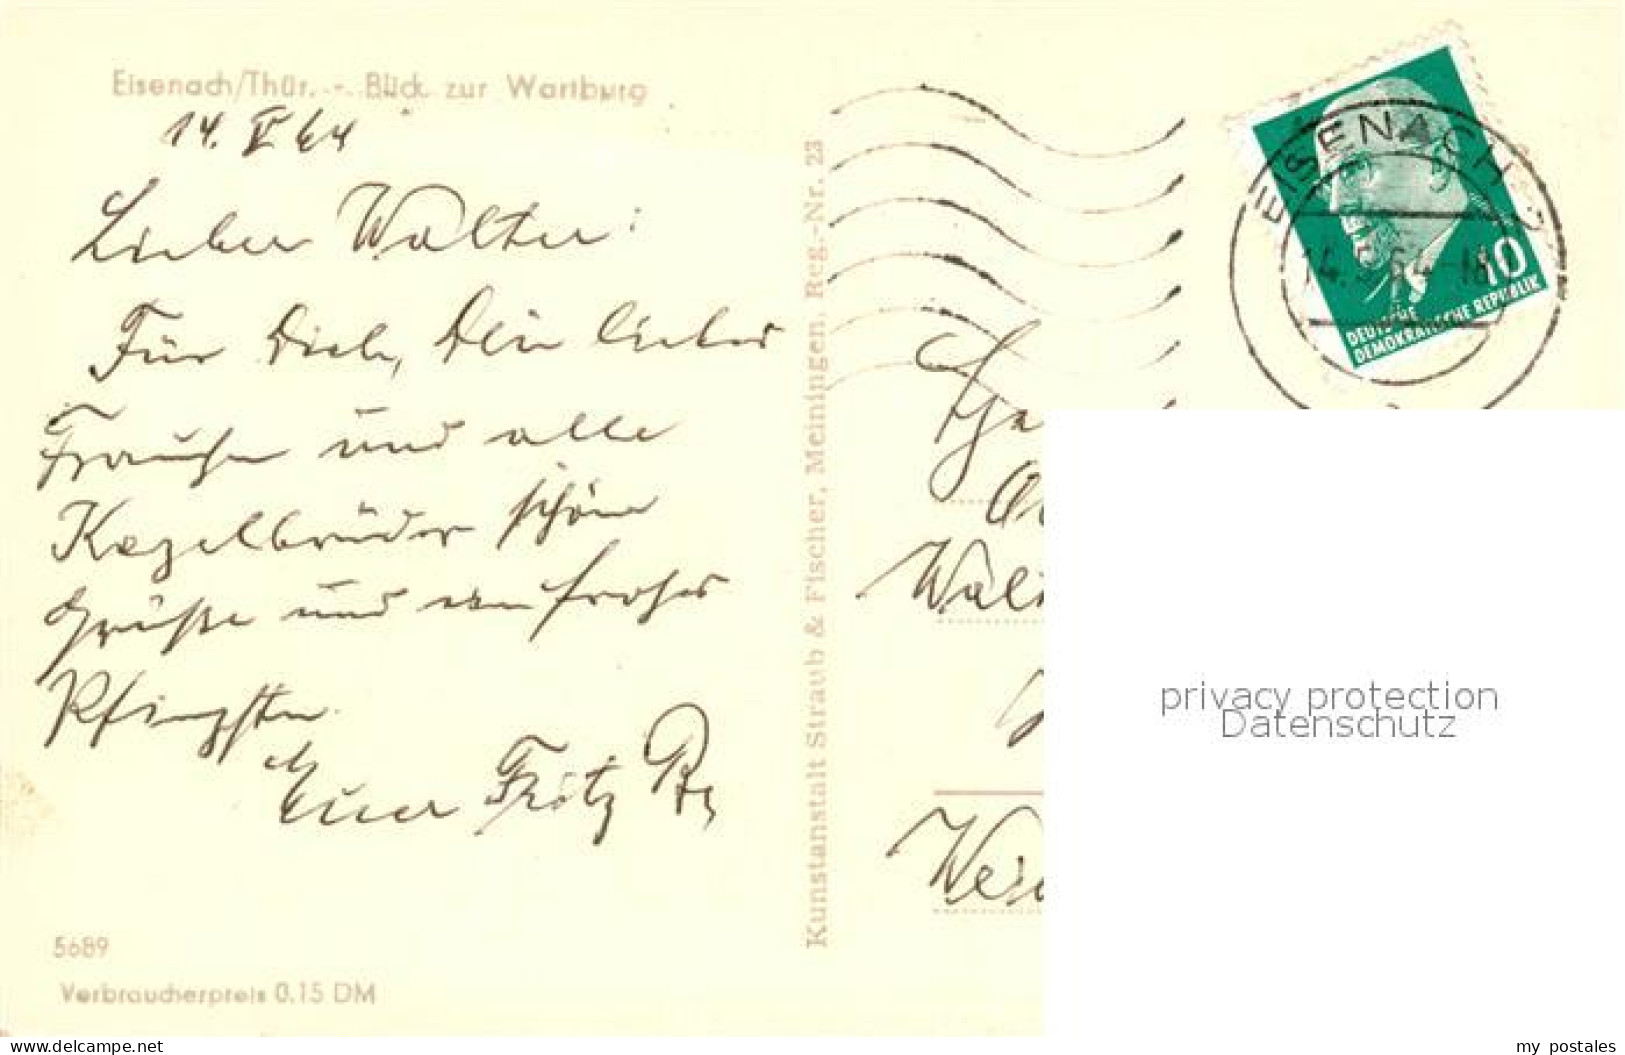 Eisenach/Thür. - Blick zur Wartburg
14. V 64
Lieber Walter:
Für Dich, Dein liebes
Frauchen und alle
Kegelbrüder schöne
Grüße und ein frohes
Pfingsten.
Euer Fritz
5689
Verbraucherpreis 0.15 DM
Kunstanstalt Straub & Fischer, Meiningen. Reg.-Nr. 23
EISENACH
14.5.64-18
10
DEUTSCHE
DEMOKRATISCHE REPUBLIK
Wal
privacy protection
Datenschutz
www.delcampe.net
my_postales